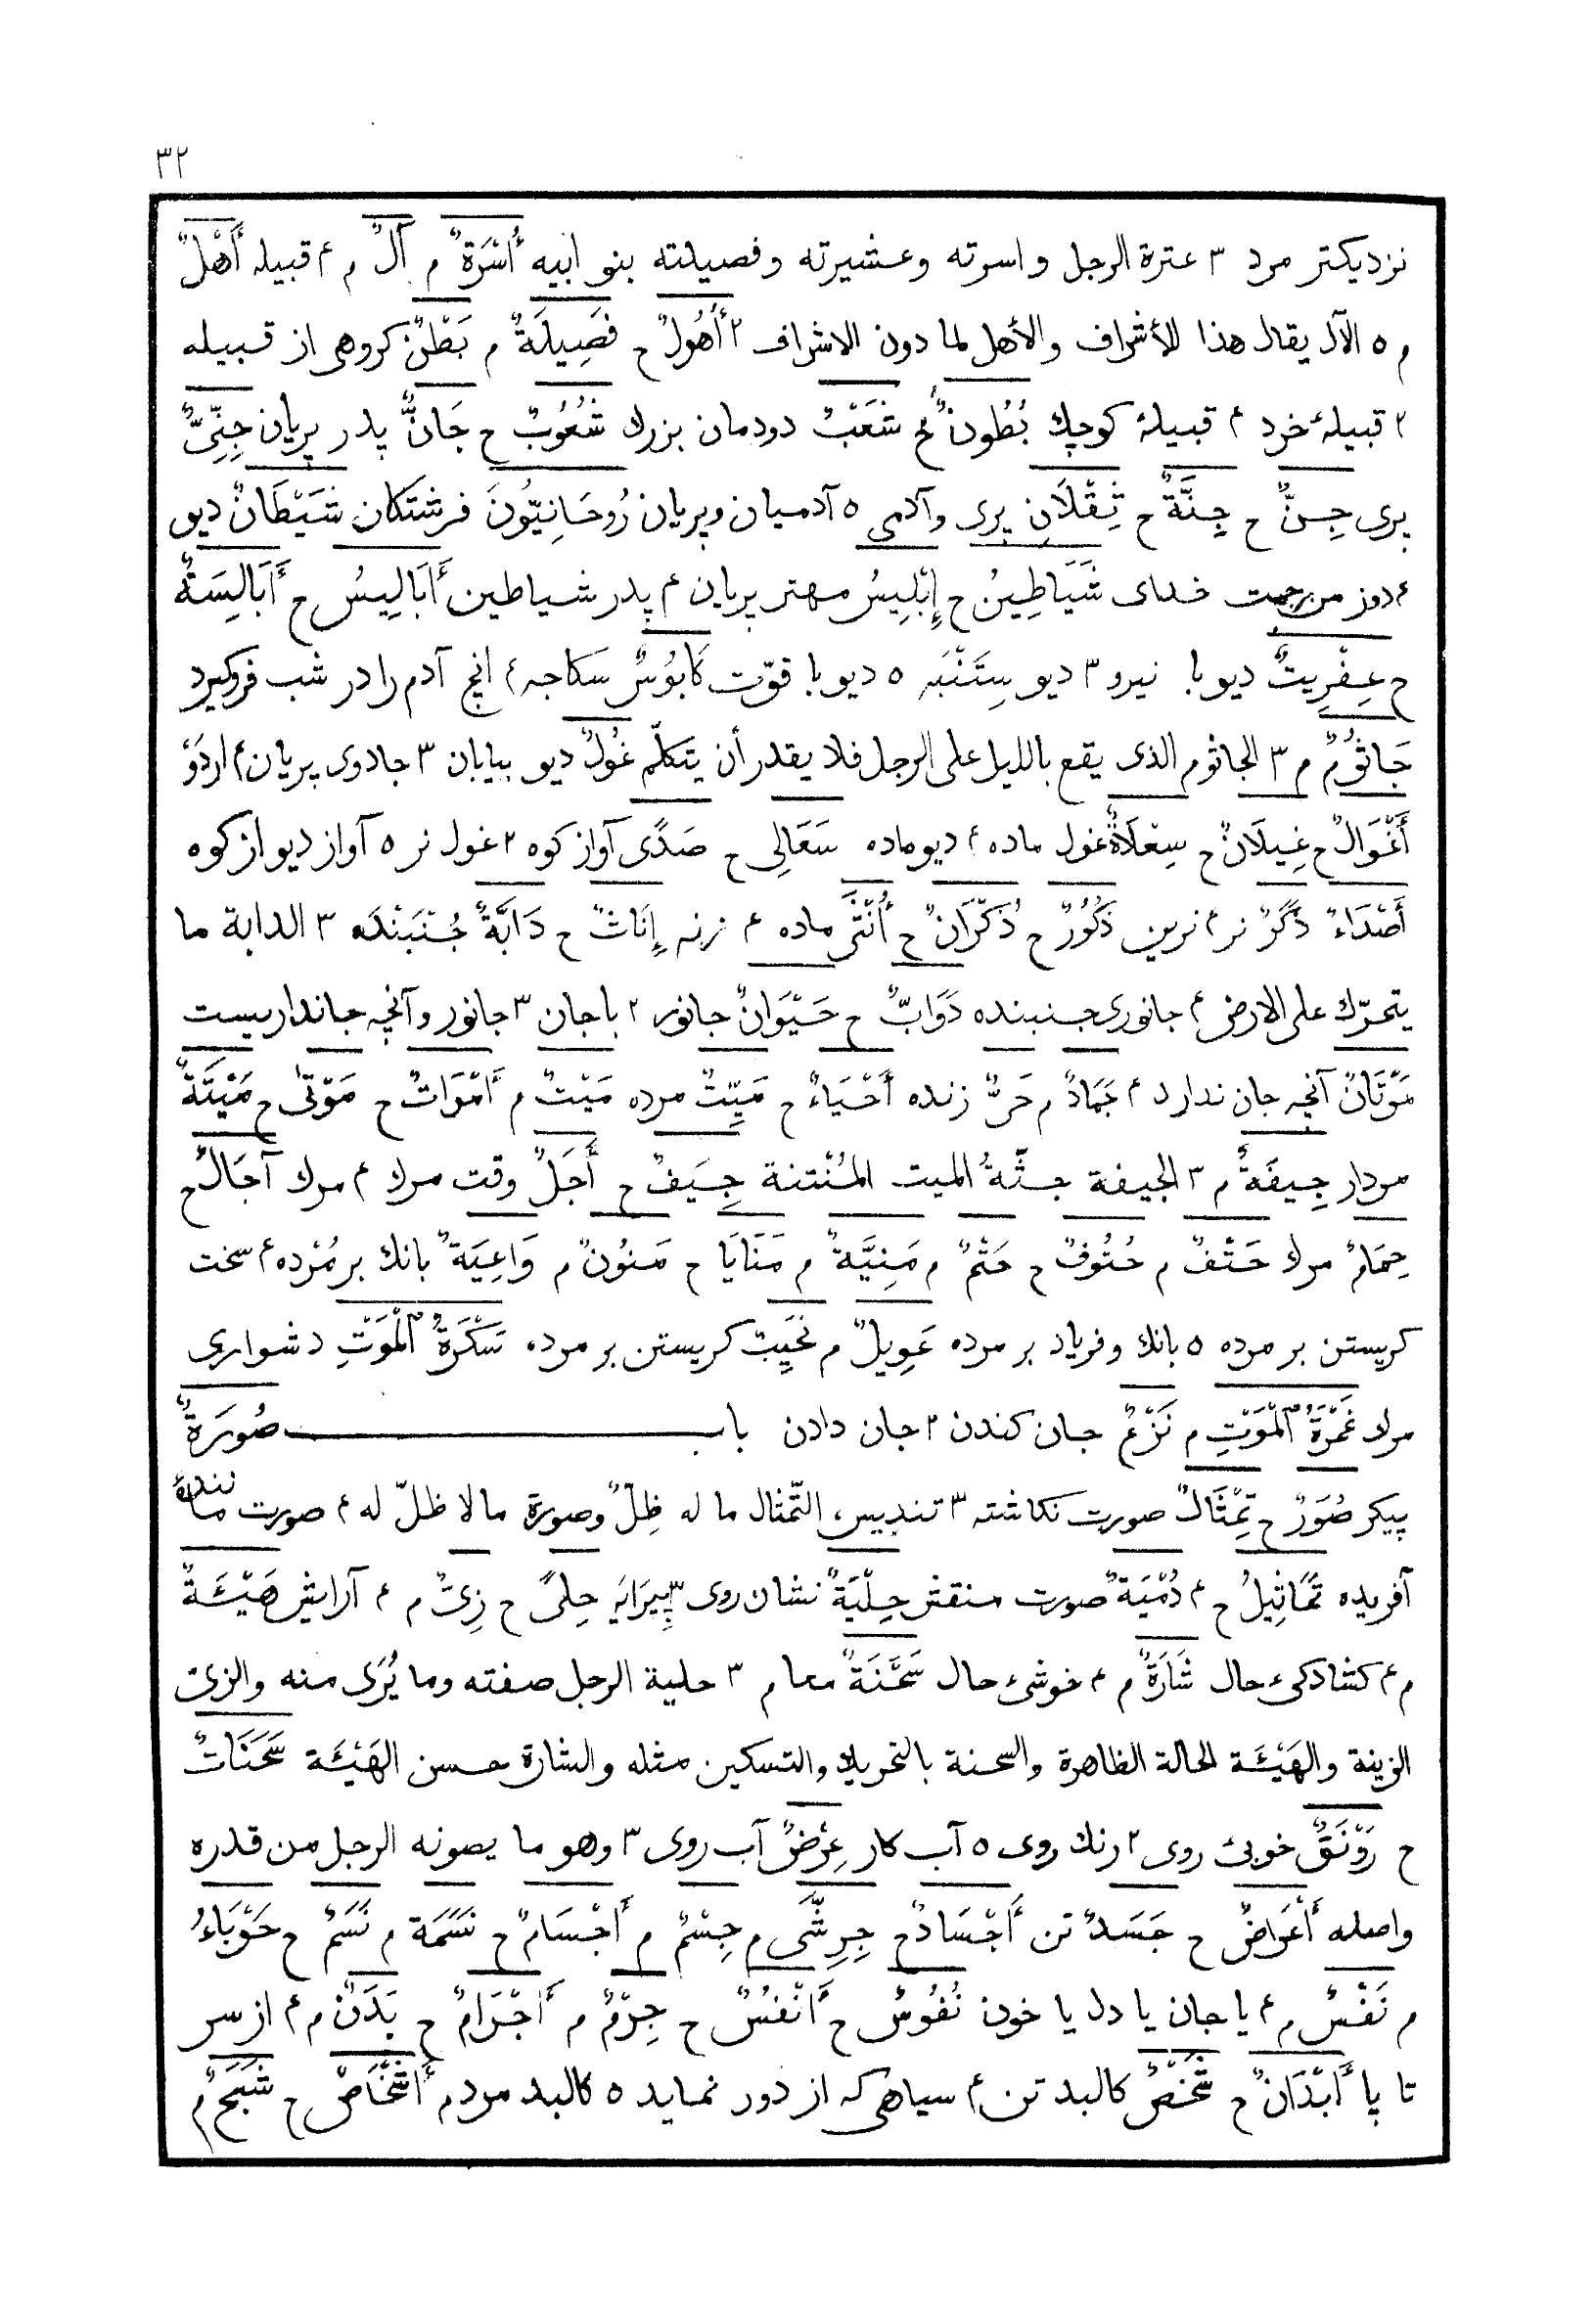 ٣٢
نزديكتر مرد ٣ عترة الرجل و اسرته وعشيرته وفصيلته بنو ابيه أُسْرَةٌ م آلٌ م ۴ قبيله أَهْلٌ
م ٥ الآل يقال هذا للأشراف والأهل لما دون الاشراف ٢ أُهُولٌ ح فَصِيلَةٌ م بَطْنٌ كروهى از قبيله
٢ قبيلهٔ خرد ۴ قبيلهٔ كوچك بُطُونٌ ح شَعْبٌ دودمان بزرك شُعُوبٌ ح جَانٌّ پدر پريان جِنِّىٌّ
پرى جِنٌّ ح جِنَّةٌ ح ثِقْلَانِ پرى وآدمى ٥ آدميان وپريان رُوحَانِيُّونَ فرشتكان شَيْطَانٌ ديو
۴ دور من رحمت خداى شَيَاطِينُ ح إِبْلِيسُ مهتر پريان ۴ پدر شياطين أَبَالِيسُ ح أَبَالِسَةٌ
ح عِفْرِيتٌ ديو با نيرو ٣ ديو سِتَنْبَه ٥ ديو با قوّت كَابُوسٌ سكاجه ۴ انچ آدم را در شب فروكيرد
جَاثُومٌ م ٣ الجاثوم الذى يقع بالليل على الرجل فلا يقدر أن يتكلّم غُولٌ ديو بيابان ٣ جادوى پريان ۴ اردَوْ
أَغْوَالٌ ح غِيلَانٌ ح سِعْلَاةٌ غول ماده ۴ ديو ماده سَعَالِى ح صَدًى آواز كوه ٢ غول نر ٥ آواز ديو از كوه
أَصْدَاءٌ ذَكَرٌ نر ۴ نرين ذُكُورٌ ح ذُكْرَانٌ ح أُنْثَى ماده ۴ زنه إِنَاثٌ ح دَابَّةٌ جُنْبَنْدَه ٣ الدابة ما
يتحرّك على الارض ۴ جانورى جنبنده دَوَابٌّ ح حَيْوَانٌ جانور ٢ با جان ٣ جانور وآنچه جانداريست
مَوْتَانٌ آنچه جان ندارد ۴ جَمَادٌ م حَىٌّ زنده أَحْيَاءٌ ح مَيِّتٌ مرده مَيْتٌ م أَمْوَاتٌ ح مَوْتَى ح مَيْتَةٌ
مردار جِيفَةٌ م ٣ الجيفة جثّةُ الميت المُنْتنة جِيَفٌ ح أَجَلٌ وقت مرك ۴ مرك آجَالٌ ح
حِمَامٌ مرك حَتْفٌ م حُتُوفٌ ح حَتْمٌ م مَنِيَّةٌ م مَنَايَا ح مَنُونٌ م وَاعِيَةٌ بانك بر مُرْده ۴ سخت
كريستن بر مرده ٥ بانك وفرياد بر مرده عَوِيلٌ م نَحِيبٌ كريستن بر مرده سَكْرَةُ الْمَوْتِ دشوارى
مرك غَمْرَةُ الْمَوْتِ م نَزْعٌ جان كندن ٢ جان دادن باب صُورَةٌ
پيكر صُوَرٌ ح تِمْثَالٌ صورت نكاشته ٣ تنديس، التّمثال ما له ظِلّ وصورة ما لا ظلّ له ۴ صورت مانندهٔ
آفريده تَمَاثِيلُ ح ۴ دُمْيَةٌ صورت منقش حِلْيَةٌ نشان روى ٣ پِيرَايَه حِلًى ح زِىٌّ م ۴ آرايش هَيْئَةٌ
م ۴ كشادكىء حال شَارَةٌ م ۴ خوشىء حال سَحْنَةٌ معا م ٣ حلية الرجل صفته وما يُرَى منه والزىّ
الزينة والهَيْئَة الحالة الظاهرة والسحنة بالتحريك والتسكين مثله والشارة حسن الهَيْئَة سَحَنَاتٌ
ح رَوْنَقٌ خوبىء روى ٢ رنك روى ٥ آب كار عِرْضٌ آب روى ٣ وهو ما يصونه الرجل من قدره
واصله أَعْرَاضٌ ح جَسَدٌ تن أَجْسَادٌ ح جِرِشَّى م جِسْمٌ م أَجْسَامٌ ح نَسَمَة م نَسَمٌ ح حَوْبَاءُ
م نَفْسٌ م ۴ يا جان يا دل يا خون نُفُوسٌ ح أَنْفُسٌ ح جِرْمٌ م أَجْرَامٌ ح بَدَنٌ م ۴ از سر
تا پا أَبْدَانٌ ح شَخْصٌ كالبد تن ۴ سياهى كه از دور نمايد ٥ كالبد مردم أَشْخَاصٌ ح شَبَحٌ م